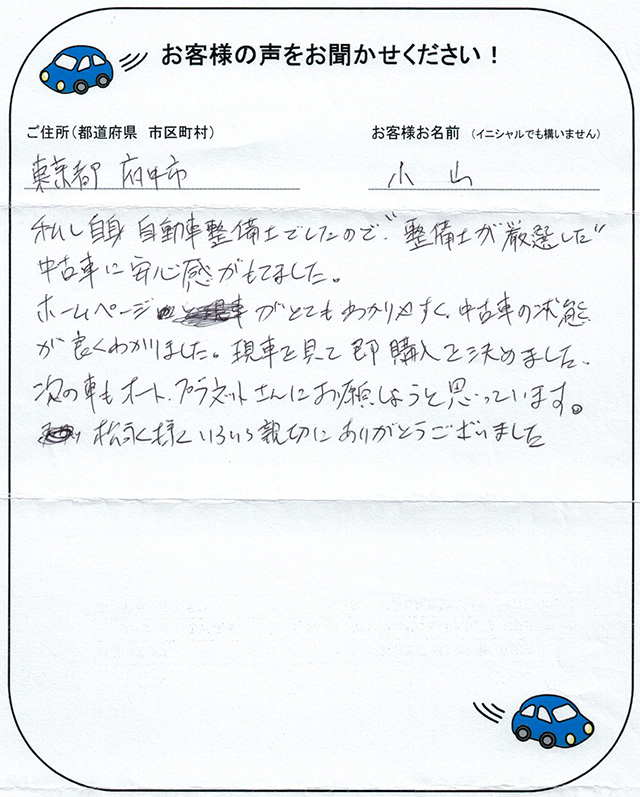 お客様の声をお聞かせください！
ご住所（都道府県　市区町村）　お客様お名前　（イニシャルでも構いません）
東京都　府中市　小山
私し自身 自動車整備士でしたので、"整備士が厳選した"
中古車に安心感がもてました。
ホームページ がとてもわかりやすく、中古車の状態
が良くわかりました。現車を見て即購入を決めました、
次の車もオート、プラネットさんにお願しようと思っています。
松永様 いろいろ親切にありがとうございました